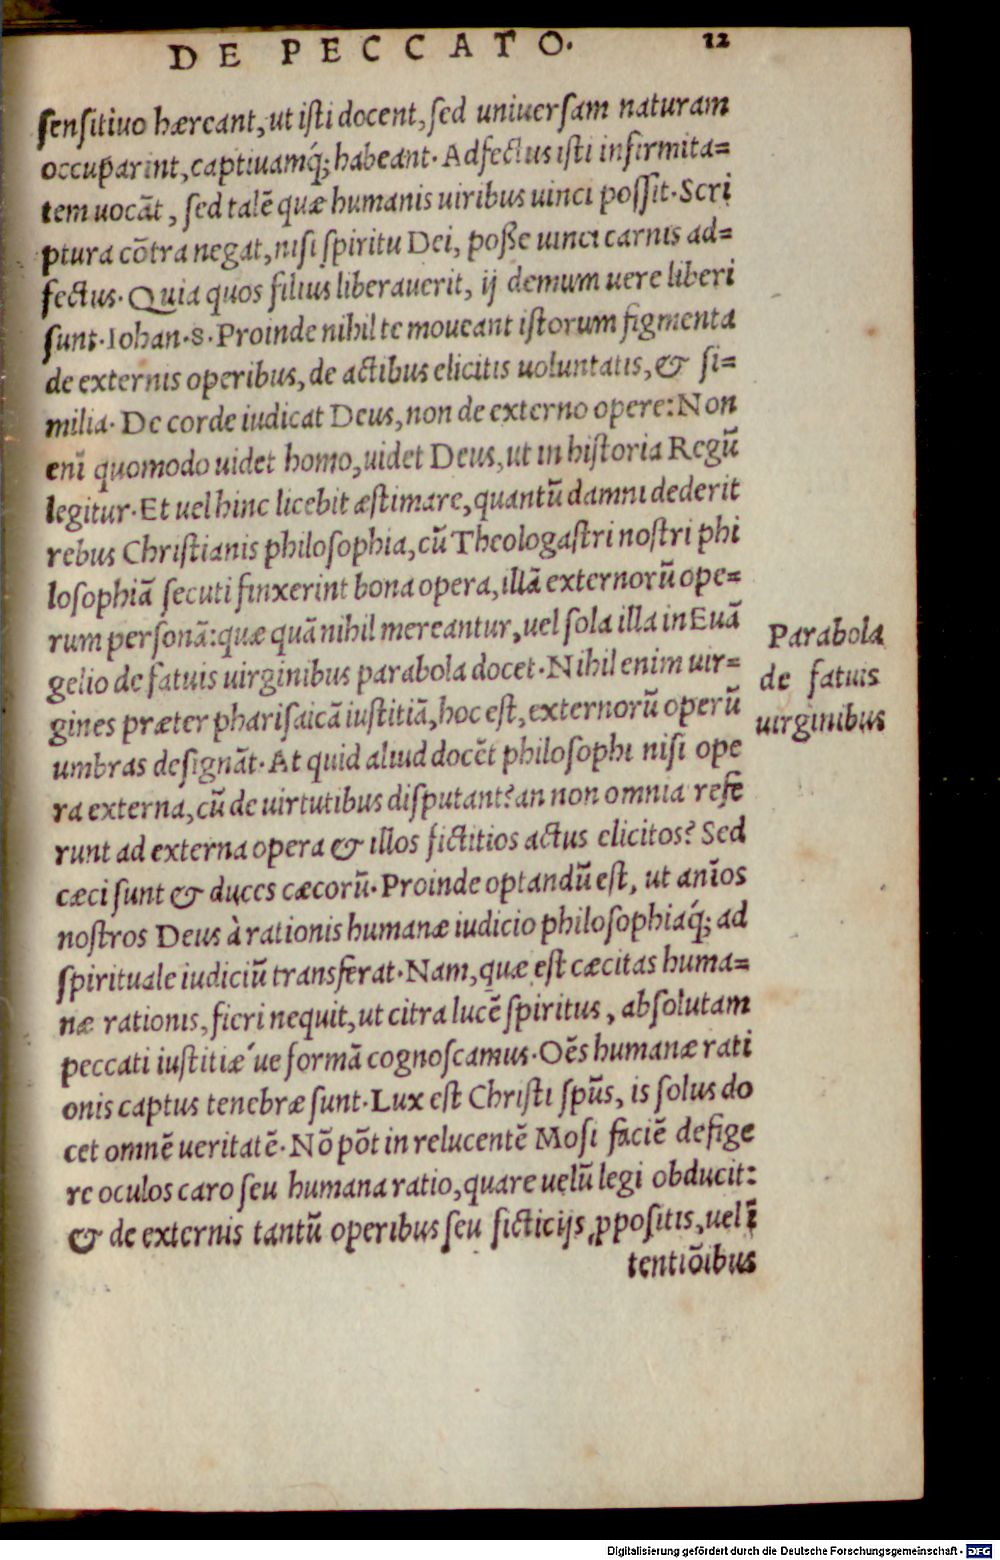 DE PECCATO. 12
ſenſitiuo hæreant, ut iſti docent, ſed uniuerſam naturam
occuparint, captiuamq́; habeant. Adfectus iſti infirmita=
tem uocãt, ſed talẽ quæ humanis uiribus uinci poſſit. Scri
ptura cõtra negat, niſi ſpiritu Dei, poſſe uinci carnis ad=
fectus. Quia quos filius liberauerit, ij demum uere liberi
ſunt. Iohan. 8. Proinde nihil te moueant iſtorum figmenta
de externis operibus, de actibus elicitis uoluntatis, & ſi=
milia. De corde iudicat Deus, non de externo opere: Non
enĩ quomodo uidet homo, uidet Deus, ut in hiſtoria Regũ
legitur. Et uel hinc licebit æſtimare, quantũ damni dederit
rebus Chriſtianis philoſophia, cũ Theologaſtri noſtri phi
loſophiã ſecuti finxerint bona opera, illã externorũ ope=
rum perſonã: quæ quã nihil mereantur, uel ſola illa in Euã
gelio de fatuis uirginibus parabola docet. Nihil enim uir=
gines præter phariſaicã iuſtitiã, hoc eſt, externorũ operũ
umbras deſignãt. At quid aliud docẽt philoſophi niſi ope
ra externa, cũ de uirtutibus diſputant? an non omnia refe
runt ad externa opera & illos fictitios actus elicitos? Sed
cæci ſunt & duces cæcorũ. Proinde optandũ eſt, ut anĩos
noſtros Deus à rationis humanæ iudicio philoſophiaq́; ad
ſpirituale iudiciũ transferat. Nam, quæ eſt cæcitas huma=
næ rationis, fieri nequit, ut citra lucẽ ſpiritus, abſolutam
peccati iuſtitiæ´ue formã cognoſcamus. Oẽs humanæ rati
onis captus tenebræ ſunt. Lux eſt Chriſti ſpũs, is ſolus do
cet omnẽ ueritatẽ. Nõ põt in relucentẽ Moſi faciẽ defige
re oculos caro ſeu humana ratio, quare uelũ legi obducit:
& de externis tantũ operibus ſeu ficticijs ꝓpoſitis, uel ĩ
tentiõibus
Parabola
de fatuis
uirginibus
Digitalisierung gefördert durch die Deutsche Forschungsgemeinschaft - DFG